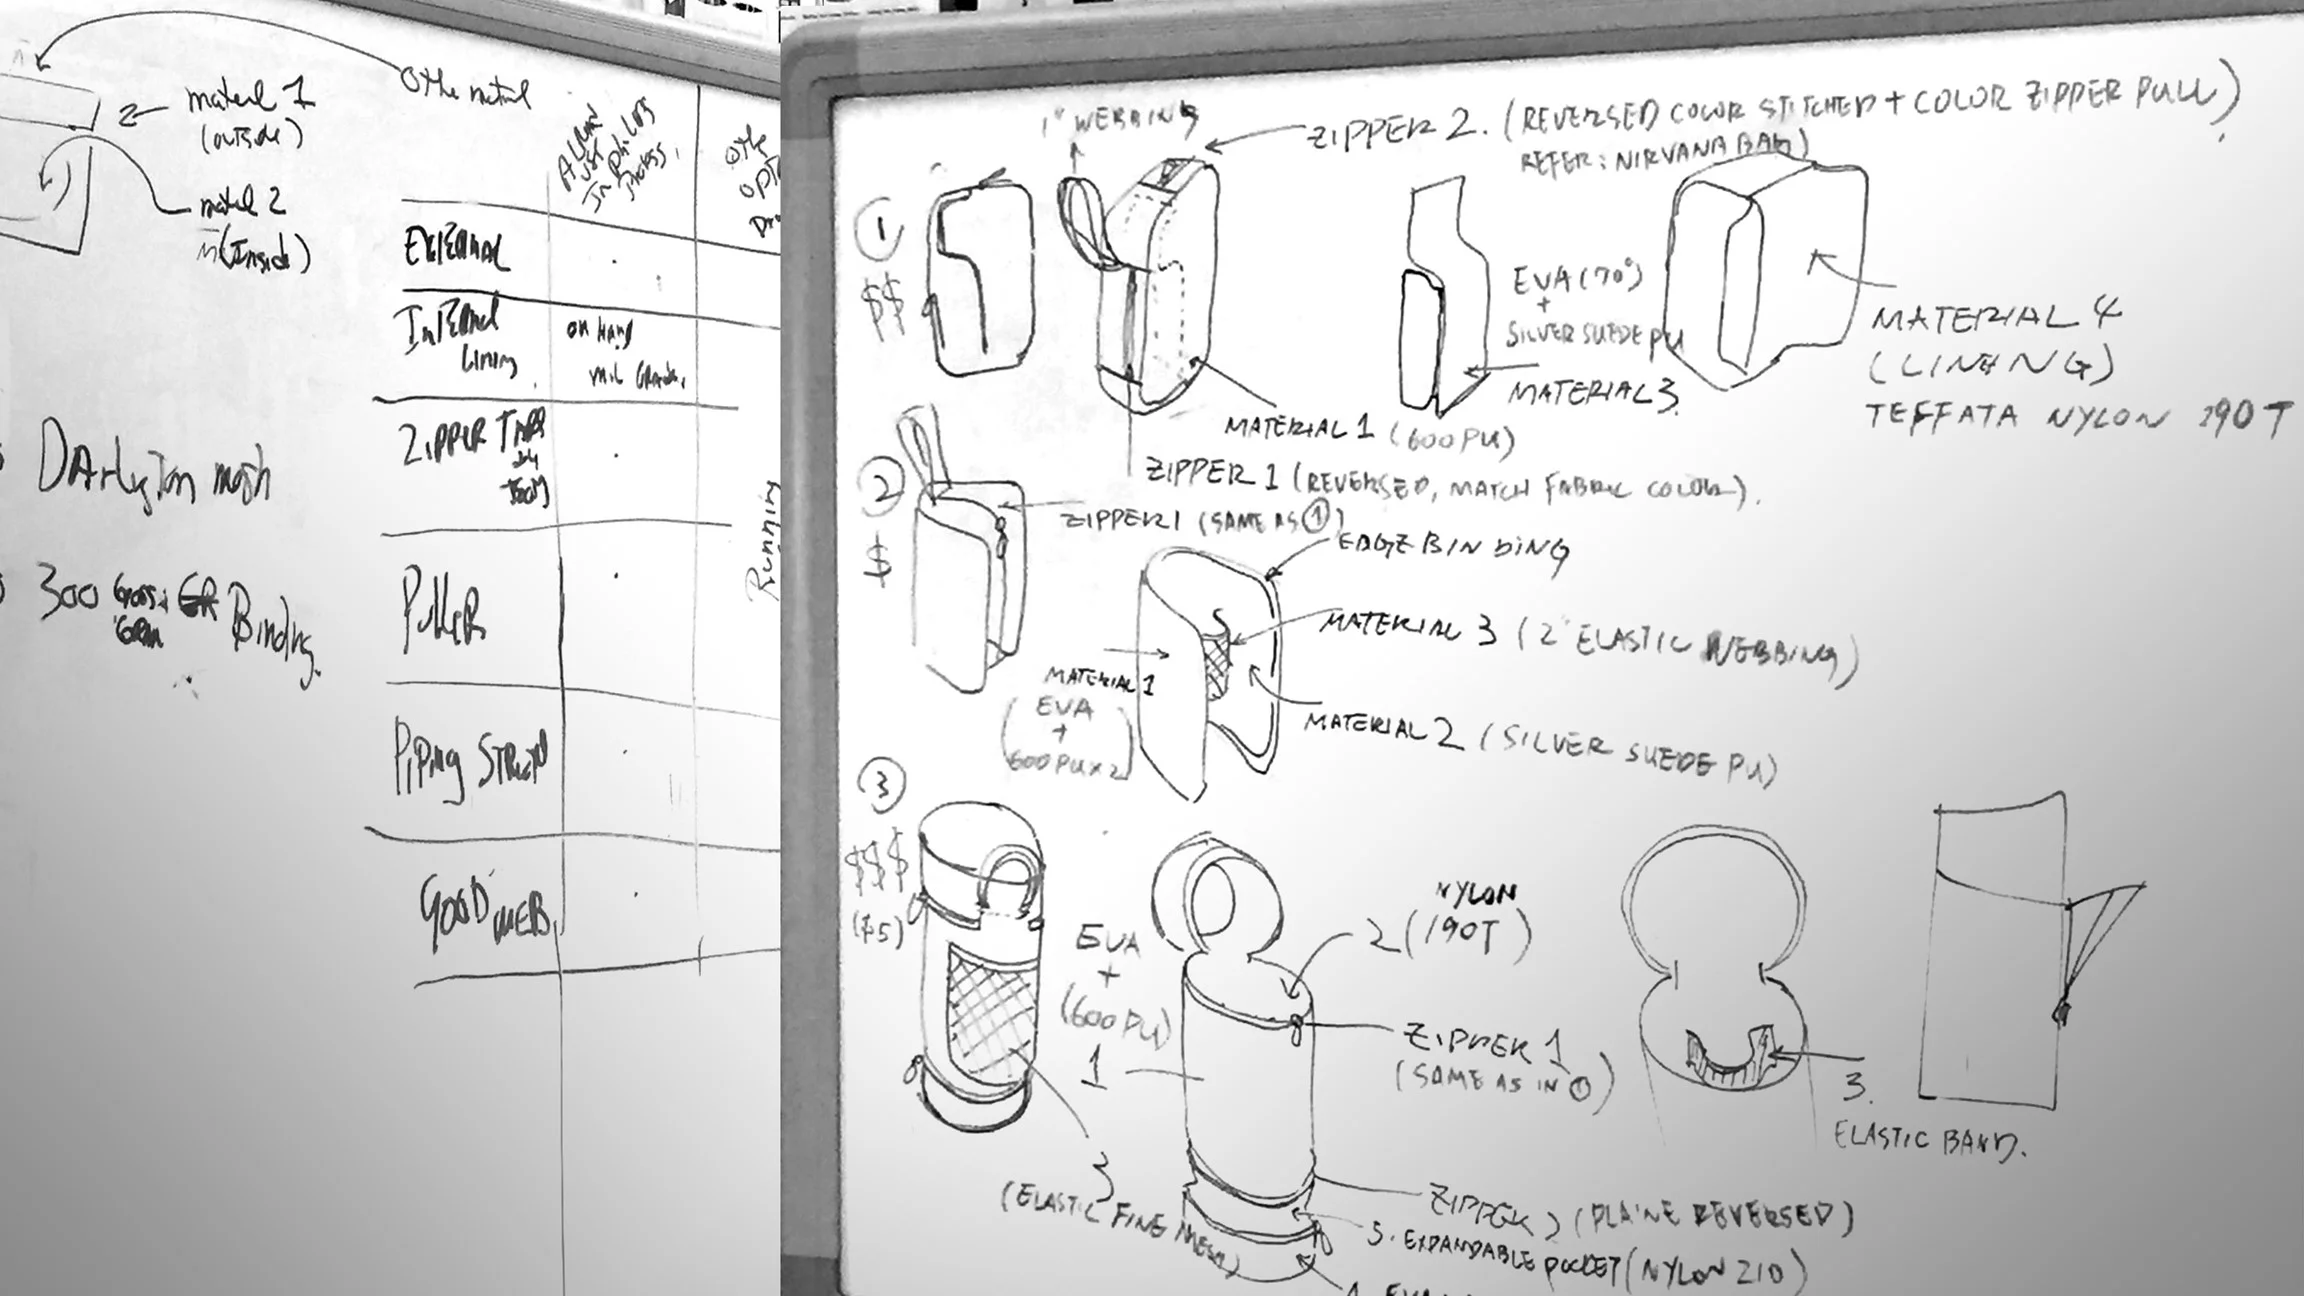 material 1
(outside)
2
(Inside)
EXTERNAL
Internal
Lining
on Hand
ZIPPER
Puller
Piping
GOOD WEB
300
Binding.
Running
1" WEBBING
ZIPPER 2. (REVERSED COLOR STITCHED + COLOR ZIPPER PULL)
REFER: NIRVANA BAG)
1
$$
EVA (70°)
+
SILVER SUEDE PU
MATERIAL 3.
MATERIAL 4
(LINING)
TEFFATA NYLON 190T
MATERIAL 1 (600 PU)
ZIPPER 1 (REVERSED, MATCH FABRIC COLOR).
2
$
ZIPPER 1 (SAME AS 1)
EDGE BINDING
MATERIAL 3 (2" ELASTIC WEBBING)
MATERIAL 1
(EVA
+
600 PU x 2)
MATERIAL 2 (SILVER SUEDE PU)
3
$$$
($5)
EVA
+
(600 PU)
1
NYLON
2 (190T)
ZIPPER 1
(SAME AS IN 1)
3.
ELASTIC BAND.
3
(ELASTIC FINE MESH)
ZIPPER 2 (PLAINE REVERSED)
5. EXPANDABLE POCKET (NYLON 210)